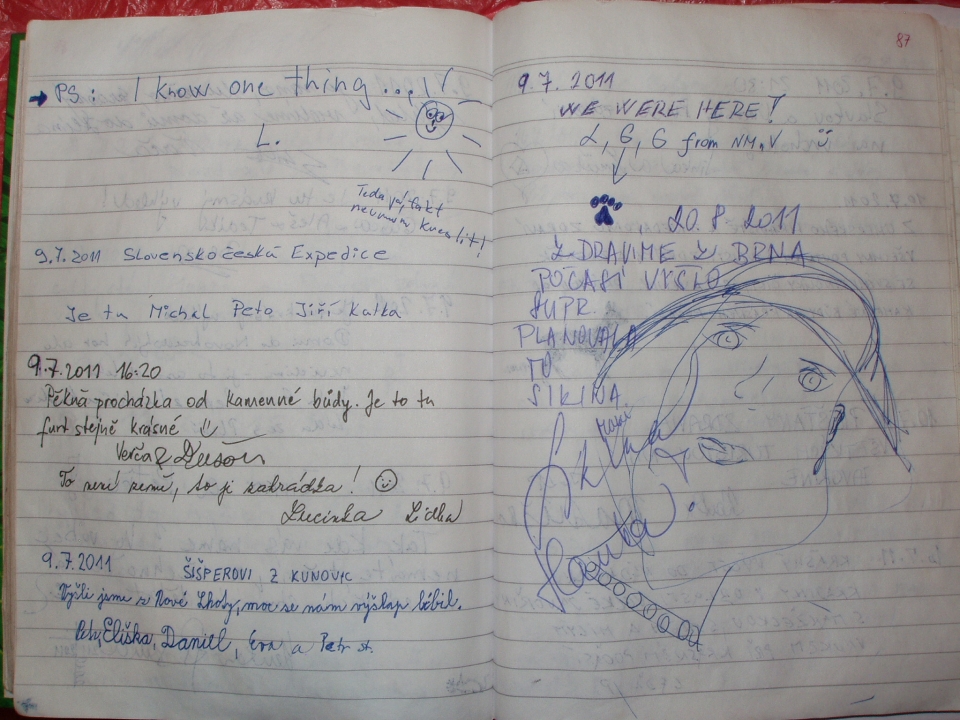 PS: I know one thing...
L.
Teda já fakt
neumím kreslit!
9.7.2011 Slovenskočeská Expedice
Je tu Michal Peto Jiří Katka
9.7.2011 16:20
Pěkná procházka od Kamenné búdy. Je to tu
furt stejně krásné
Verča &
To není země, to je zahrádka!
Lucinka Lidka
9.7.2011 ŠIŠPEROVI Z KUNOVIC
Vyšli jsme z Nové Lhoty, moc se nám výšlap líbil.
Petr, Eliška, Daniel, Eva a Petr st.
87
9.7.2011
WE WERE HERE!
L, G, G from NM,V
20.8 2011
ZDRAVIME Z BRNA
POČASÍ VYŠLO
SUPR.
PLANOVALA
TO
SIKINA
Hanka